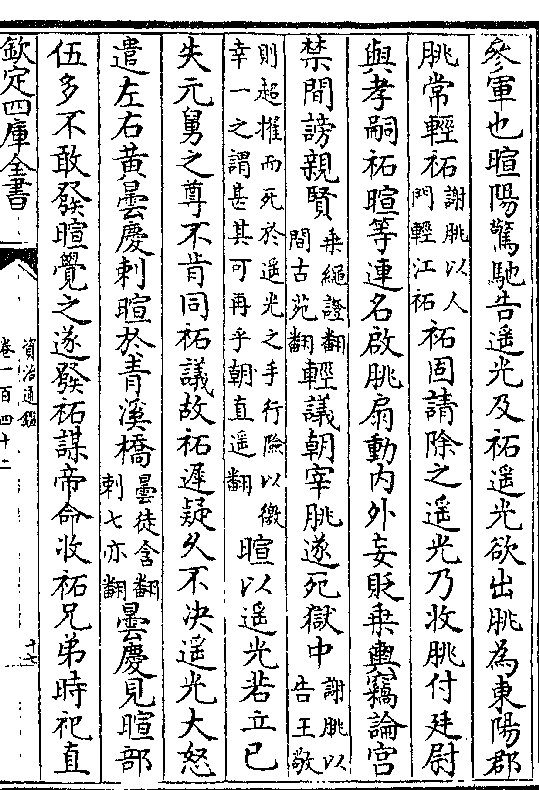 參軍也暄陽驚馳告遥光及祏遥光欲出朓為東陽郡
朓常輕祏謝朓以人門輕江祏祏固請除之遥光乃收朓付廷尉
與孝嗣祏暄等連名啟朓扇動内外妄貶乗輿竊論宫
禁間謗親賢乗繩證翻間古莧翻輕議朝宰朓遂死獄中謝朓以告王敬
則超擢而死於遥光之手行險以徼幸一之謂甚其可再乎朝直遥翻暄以遥光若立已
失元舅之尊不肯同祏議故祏遲疑久不決遥光大怒
遣左右黄曇慶刺暄於青溪橋曇徒含翻刺七亦翻曇慶見暄部
伍多不敢發暄覺之遂發祏謀帝命收祏兄弟時祀直
欽定四庫全書
資治通鑑
卷一百四十二
十六